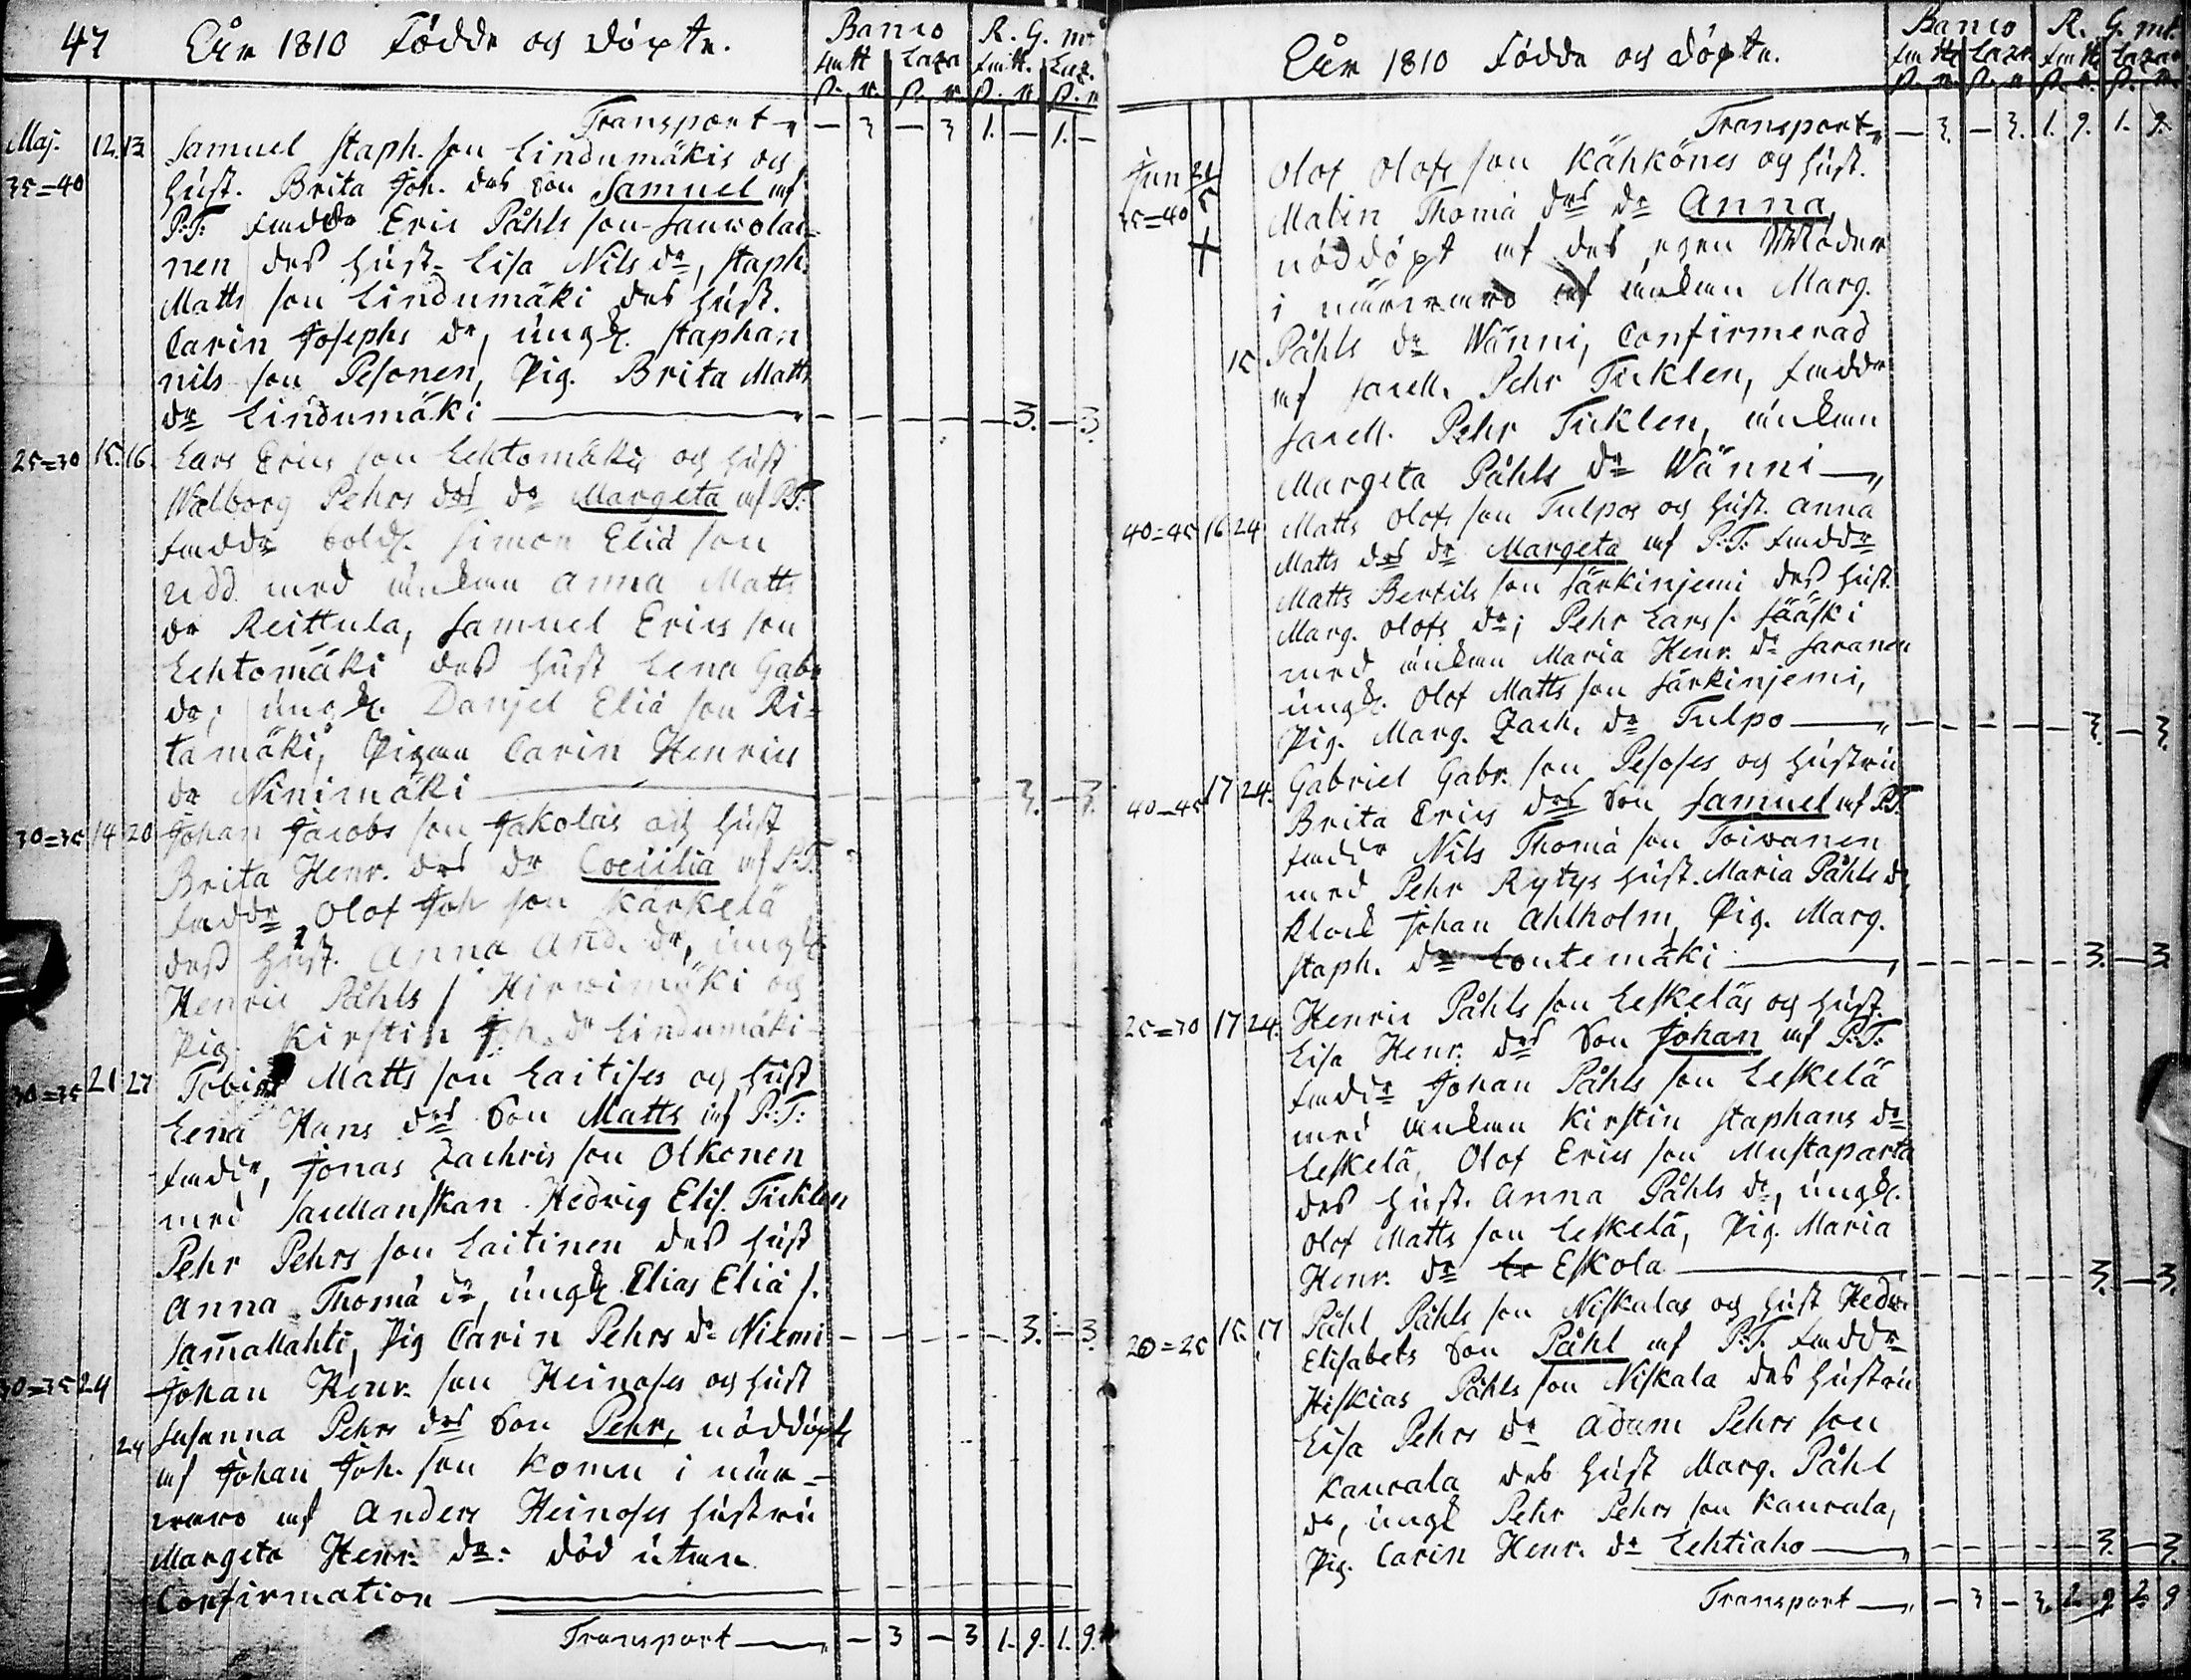 47 Åhr 1810 Födde og Döpte.
Banco R. G. mt
Fatt Laza Fatt. Laz.
ß. r. ß. r. ß. r. ß. r
Transport — 3 — 3 1. — 1. —
Maj. 12. 13 Samuel Staph. son Lindumäkis og
35=40 Hust. Brita Joh. des Son Samuel af
P.T. Fadd. Eric Påhls son Sauwolai=
nen des Hust. Lisa Nils dr, Staph.
Matts son Lindumäki des Hust.
Carin Josephs dr, ungk. Staphan
nils son Pesonen, Pig. Brita Matts
dr Lindumäki — — — — — 3. — 3.
25=30 15. 16. Lars Erics son Lehtomäkis og Hust
Walborg Pehrs des dr Margeta af P.T.
Faddr bold. Simon Eliä son
Udd med Enkan Anna Matts
dr Reittula, Samuel Erics son
Lehtomäki des Hust Lena Gabr
dr; ungk. Danjel Eliä son Ri=
tamäki, Pigan Carin Henrics
dr Ninimäki — — — — — 3. — 3.
30=35 14 20 Johan Jacobs son Jakolas og Hust
Brita Henr. des dr Coecilia af P.T.
Faddr Olof Joh son Kärkelä
des Hust. Anna And. dr, ungk
Henric Påhls s Hirwimäki og
Pig. Kirstin Joh. dr Lindumäki
30=35 21 27 Tobias Matts son Laitises og Hust
Lena Hans des Son Matts af P.T:
Faddr, Jonas Zachris son Olkonen
med Sarellanskan Hedvig Elis. Ticklen
Pehr Pehrs son Laitinen des Hust
Anna Thomä dr, ungk Elias Eliä s.
Sammallahti, Pig Carin Pehrs dr Niemi — — — — — 3. — 3
30=35 24 Johan Henr. son Heinoses og Hust
Susanna Pehrs des Son Pehr, nöddöpt
24 af Johan Joh. son Komu i när-
waro af Anders Heinoses Hustru
Margeta Henr. dr: död utan
Confirmation
Transport — 3 — 3 1. 9. 1. 9.
Åhr 1810 Födde og Döpte.
Banco R. G. mt.
Fatt Laza Fatt Laza
ß. r. ß. r. ß. r. ß. r.
Transport — 3. — 3. 1. 9. 1. 9.
Jun 21/5 Olof Olofs son Kähkönes og Hust.
35=40 Malin Thomä des dr Anna,
+ nöddöpt af des egen Moder
i närwaro af Enkan Marg.
15 Påhls dr Wänni, Confirmerad
af Sacell. Pehr Ticklen, Faddr
Sacell. Pehr Ticklen, Enkan
Margeta Påhls dr Wänni
40=45 16 24 Matts Olofs son Tulpos og Hust. Anna
Matts des dr Margeta af P.T: Faddr
Matts Bertils son Särkinjemi des Hust
Marg. Olofs dr; Pehr Lars s. Sääski
med Enkan Maria Henr. dr Saranen
ungk. Olof Matts son Särkinjemi,
Pig. Marg. Zach. dr Tulpo — — — — — 3. — 3.
40=45 17 24. Gabriel Gabr. son Pesoses og Hustru
Brita Erics des Son Samuel af P.T.
Faddr Nils Thomä son Toiwanen
med Pehr Rytys Hust. Maria Påhls dr
Klock Johan Ahlholm, Pig. Marg.
Staph. dr Lontemäki — — — — — 3. — 3.
25=30 17 24. Henric Påhls son Leskeläs og Hust.
Lisa Henr. des Son Johan af P.T:
Faddr Johan Påhls son Leskelä
med Enkan Kirstin Staphans dr
Leskelä, Olof Erics son Mustaparta
des Hust. Anna Påhls dr, ungk.
Olof Matts son Leskelä, Pig. Maria
Henr. dr Le Eskola — — — — — 3. — 3.
20=25 15. 17 Påhl Påhls son Niskalas og Hust Hedv.
Elisabets Son Påhl af P.T. Faddr
Hiskias Påhls son Niskala des Hustru
Lisa Pehrs dr Adam Pehrs son
Kaurala des Hust Marg. Påhl
dr, ungk Pehr Pehrs son Kaurala,
Pig. Carin Henr. dr Lehtiaho — — — — — 3. — 3.
Transport — 3 — 3. 2. 9. 2 9